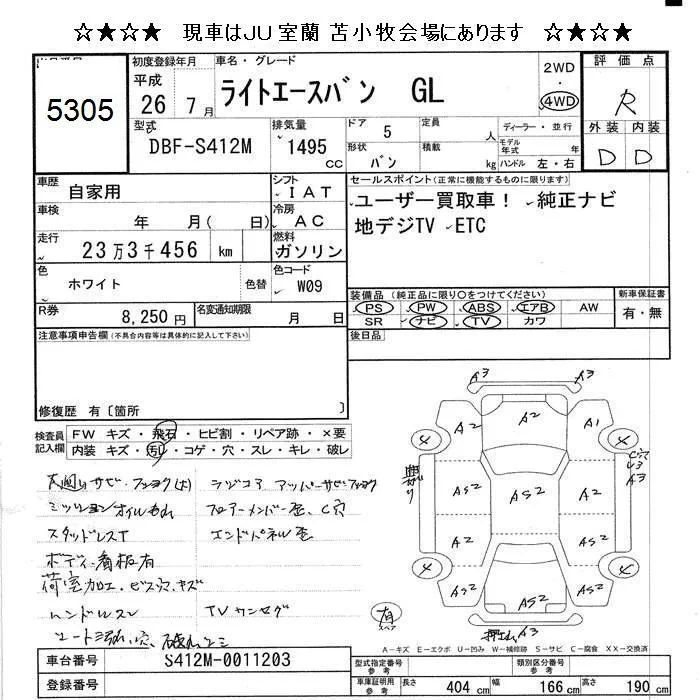 ☆★☆★ 現車はJU室蘭 苫小牧会場にあります ☆★☆★
5305
初度登録年月
平成
26 7月
車名・グレード
ライトエースバン GL
2WD
・
4WD
評価点
R
外装 内装
D D
型式
DBF-S412M
排気量
1495
cc
ドア 5
定員 人
形状 バン
積載 kg
ディーラー・並行
モデル年式 年
ハンドル 左・右
車歴
自家用
シフト
IAT
車検
年 月( 日)
冷房
AC
走行
23万3千456 km
燃料
ガソリン
色
ホワイト
色替
色コード
W09
R券
8,250円
名変通知期限
月 日
セールスポイント(正常に機能するものに限ります)
ユーザー買取車! 純正ナビ
地デジTV ETC
装備品(純正品に限り○をつけてください)
新車保証書
PS PW ABS エアB AW
有・無
SR ナビ TV カワ
後日品
注意事項申告欄(不具合内容等は具体的に記入して下さい)
修復歴 有〔箇所 〕
検査員記入欄
FW キズ・飛石・ヒビ割・リペア跡・×要
内装 キズ・汚れ・コゲ・穴・スレ・キレ・破レ
下廻りサビ・フショク(大)
ラジコア アッパーサビ・フショク
ミッションオイルもれ
フロアーメンバー歪、C穴
スタッドレスT
エンドパネル歪
ボディ看板有
荷室加工・ビス穴・キズ
ハンドルスレ
TVアンテナ
A3 A3
A2 A2 A1
4 4
AS2 AS2 A2
C穴
A3
A2 AS2
4 4
A2 AS2 AS2
AS2
有
スペア
A3
A-キズ E-エクボ U-凹み W-補修跡 S-サビ C-腐食 XX-交換済
車台番号
S412M-0011203
登録番号
型式指定番号
参考
類別区分番号
参考
車庫証明用
参考
長さ 404 cm
幅 166 cm
高さ 190 cm